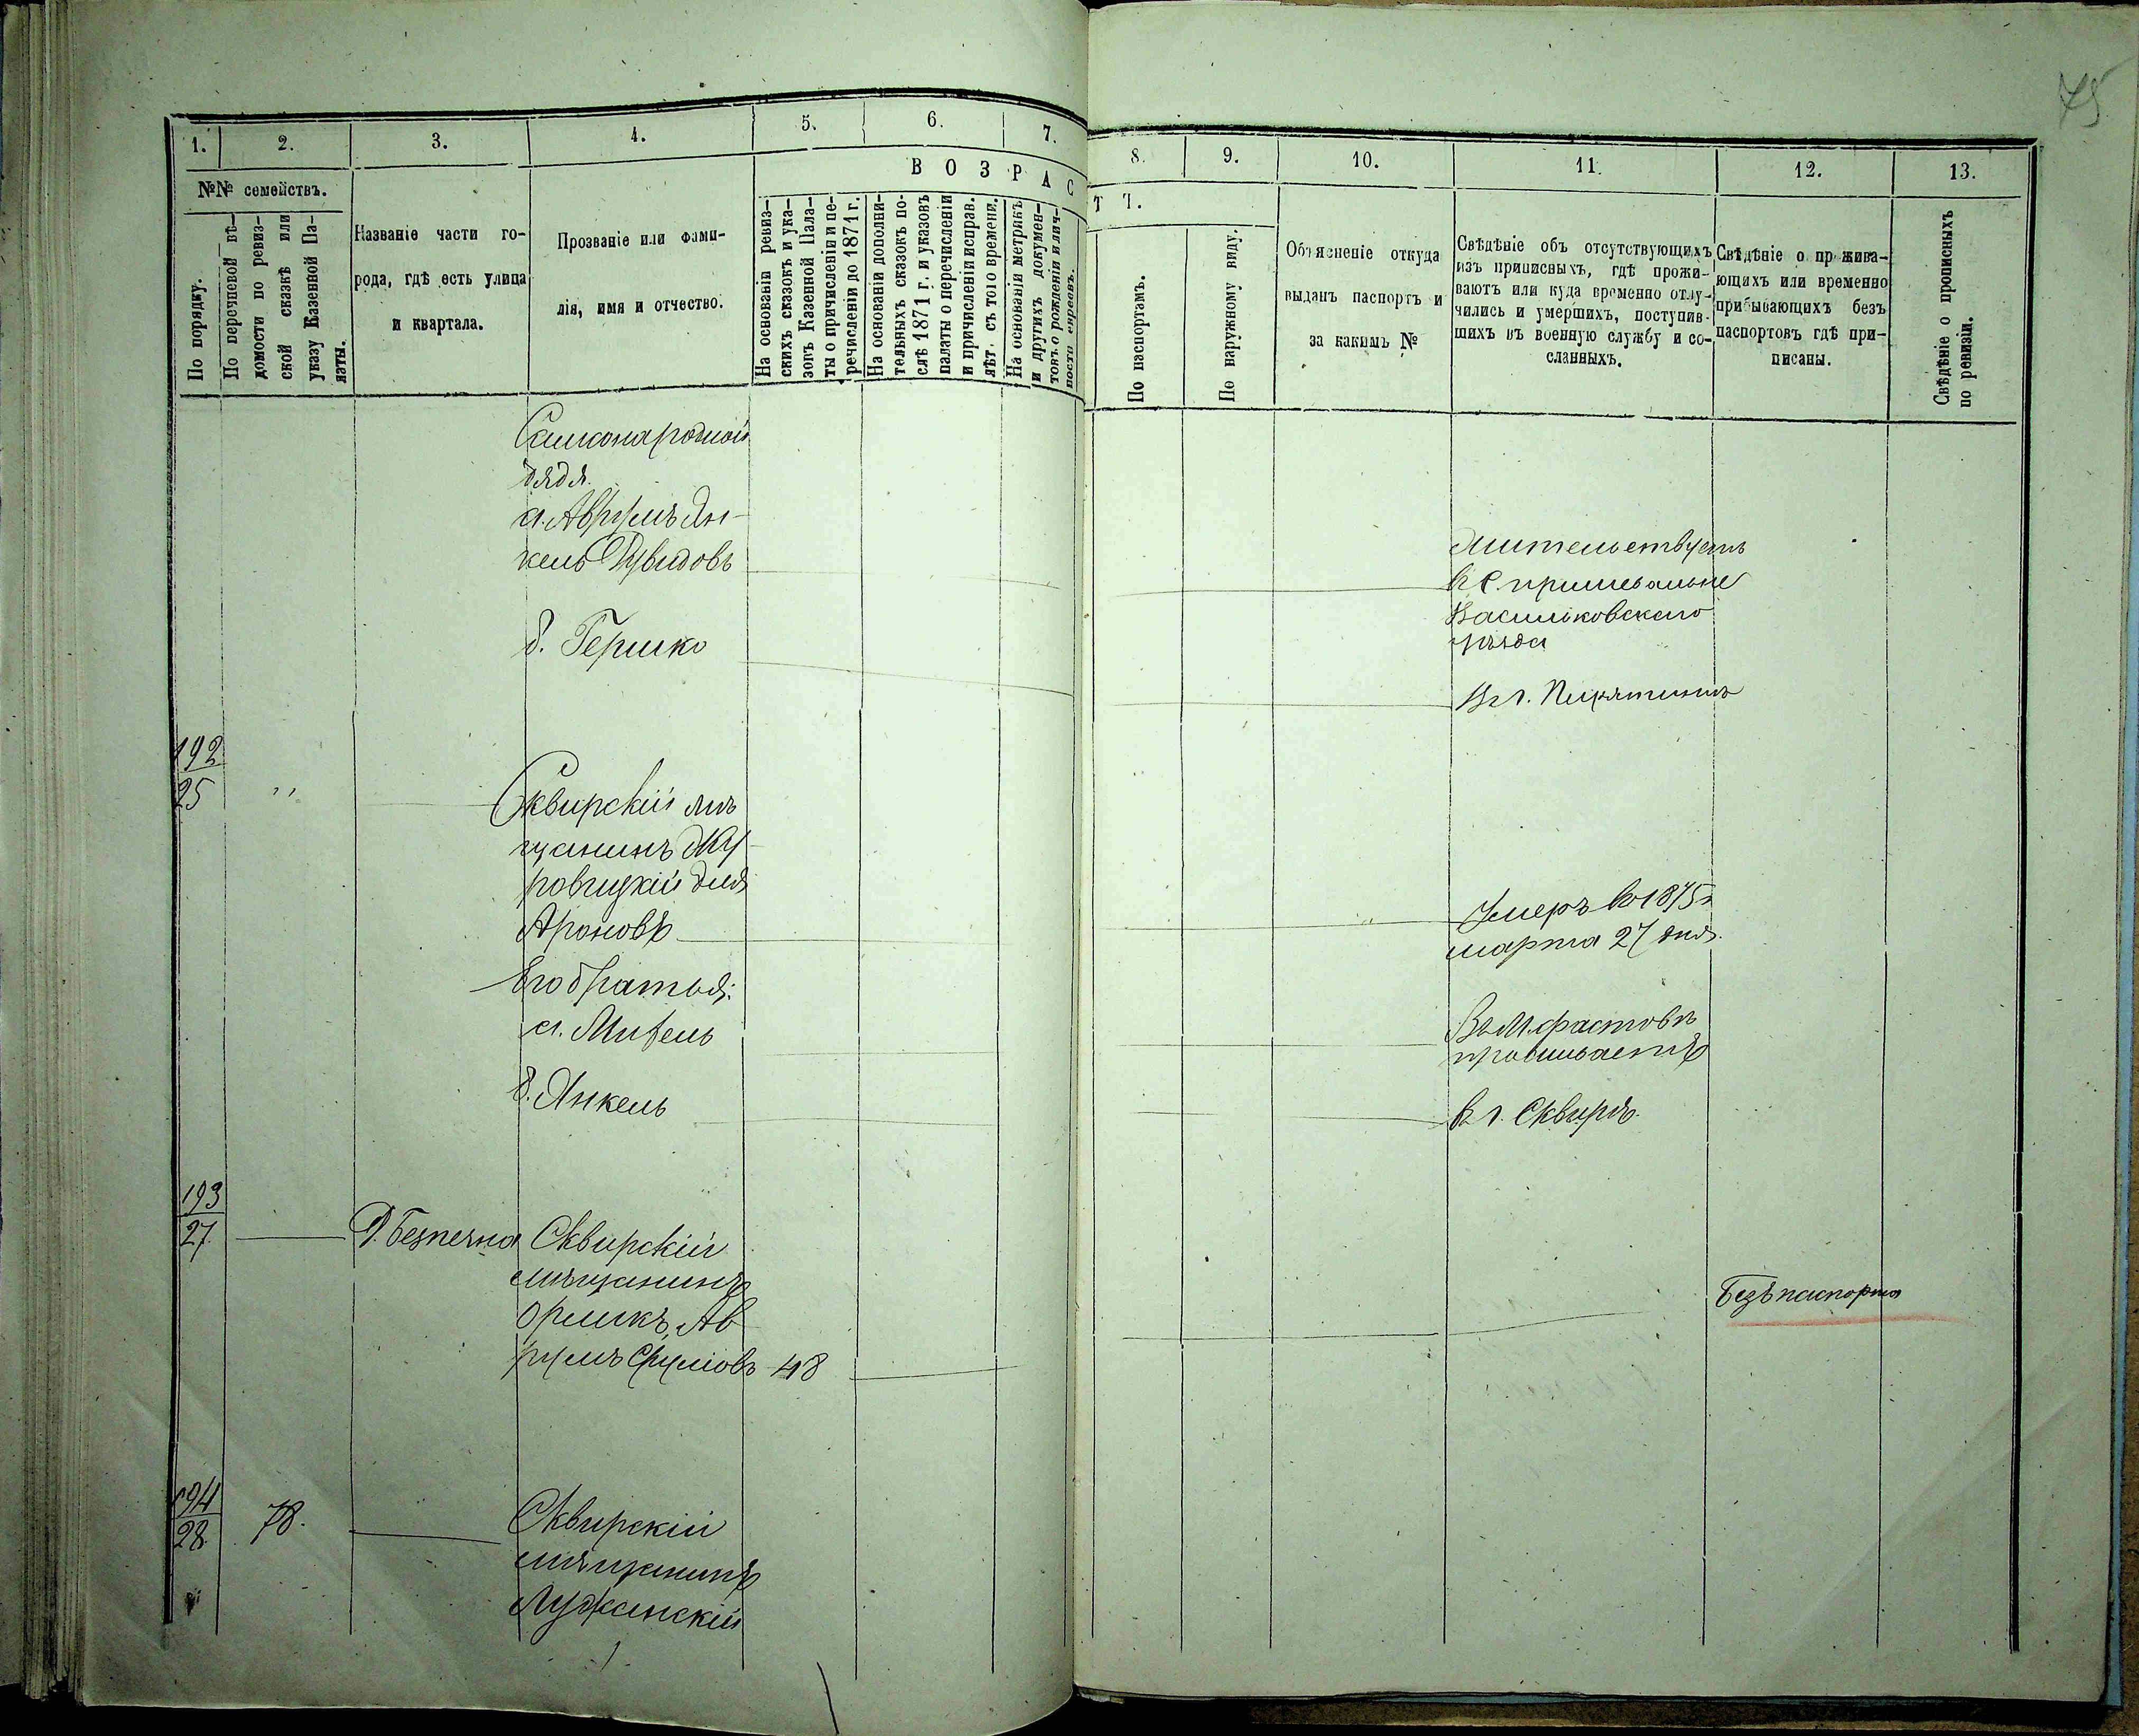 75
1.
2.
3.
4.
5.
6.
7.
8.
9.
10.
11.
12.
13.
№№ семействъ.
По порядку.
По перечневой вѣ-
домости по ревиз-
ской сказкѣ или
указу Казенной Па-
латы.
Названіе части го-
рода, гдѣ есть улица
и квартала.
Прозваніе или фами-
лія, имя и отчество.
ВОЗРАС
На основаніи ревиз-
скихъ сказокъ и ука-
зовъ Казенной Пала-
ты о причисленіи и пе-
речисленіи до 1871 г.
На основаніи дополни-
тельныхъ сказокъ по-
слѣ 1871 г. и указовъ
палаты о перечисленіи
и причисленіи исправ.
лѣт. съ того времени.
На основаніи метрикъ
и другихъ докумен-
товъ о рожденіи и лич-
ности евреевъ.
Т Ъ.
По паспортамъ.
По наружному виду.
Объясненіе откуда
выданъ паспортъ и
за какимъ №
Свѣдѣніе объ отсутствующихъ
изъ приписныхъ, гдѣ прожи-
ваютъ или куда временно отлу-
чились и умершихъ, поступив-
шихъ въ военную службу и со-
сланныхъ.
Свѣдѣніе о прожива-
ющихъ или временно
прибывающихъ безъ
паспортовъ гдѣ при-
писаны.
Свѣдѣніе о прописныхъ
по ревизіи.
дядя.
а. Аврумъ Ян-
кель Дувидовъ
жительствуетъ
Васильковскаго
уѣзда
б. Гершко
Въ г. Пирятинѣ
192
25
"
Сквирскій мѣ
щанинъ Му
ровицкій
Ароновъ
Умеръ въ 1875 г
марта 27 дня.
Его братья:
а. Мифель
Въ М. Фастовѣ
проживаетъ
б. Янкель
въ г. Сквирѣ.
193
27
Д. Безпечна
Сквирскій
мѣщанинъ
Оршикъ, Ав
румъ Сруліовъ 48
Безъ паспорта
194
28
78.
Сквирскій
мѣщанинъ
Лужанскій